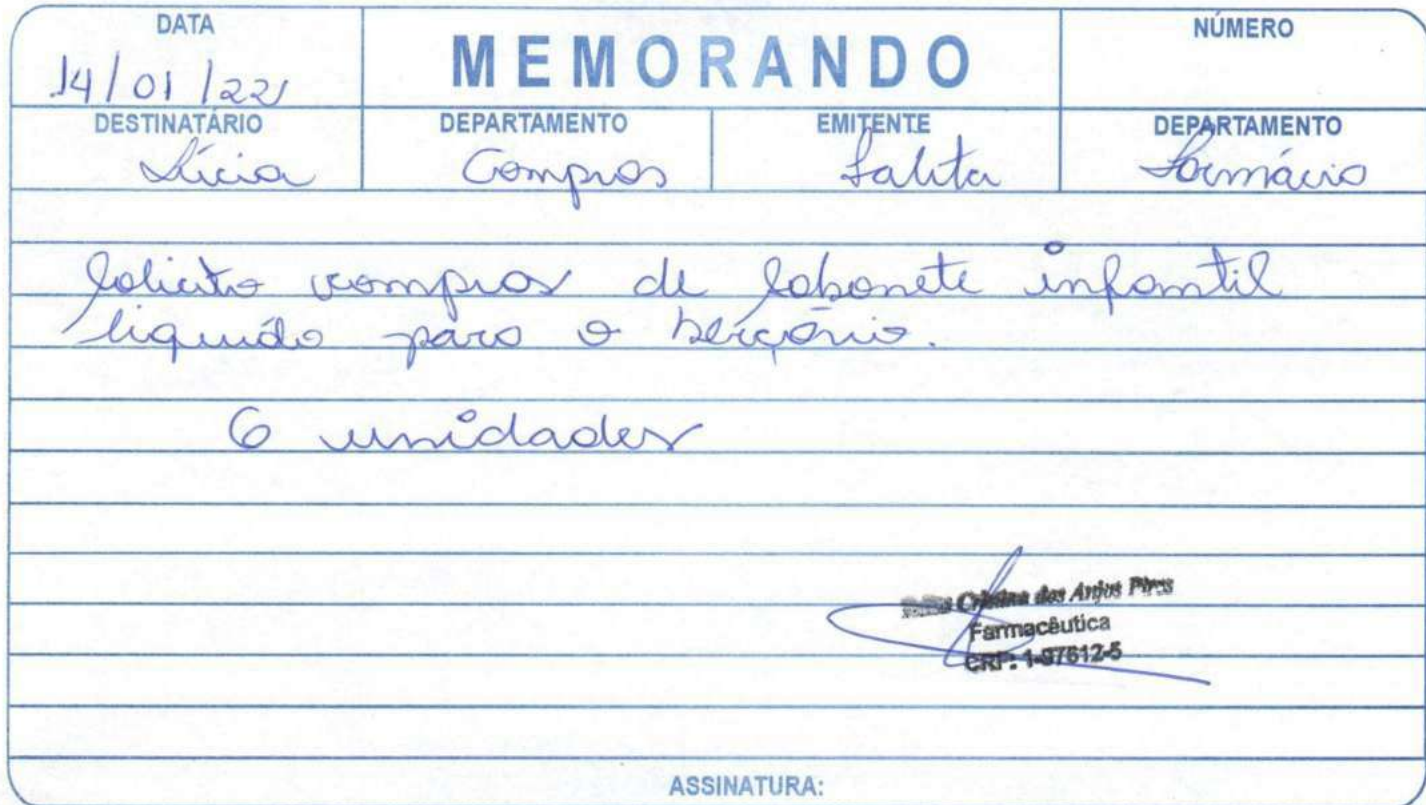 DATA
14/01/22
MEMORANDO
NÚMERO
DESTINATÁRIO
Lúcia
DEPARTAMENTO
Compras
EMITENTE
Talita
DEPARTAMENTO
Farmácia
Solicito compras de sabonete infantil
liquído para o berçário.
6 unidades
Cristina dos Anjos Pires
Farmacêutica
CRF: 1-97612-5
ASSINATURA: